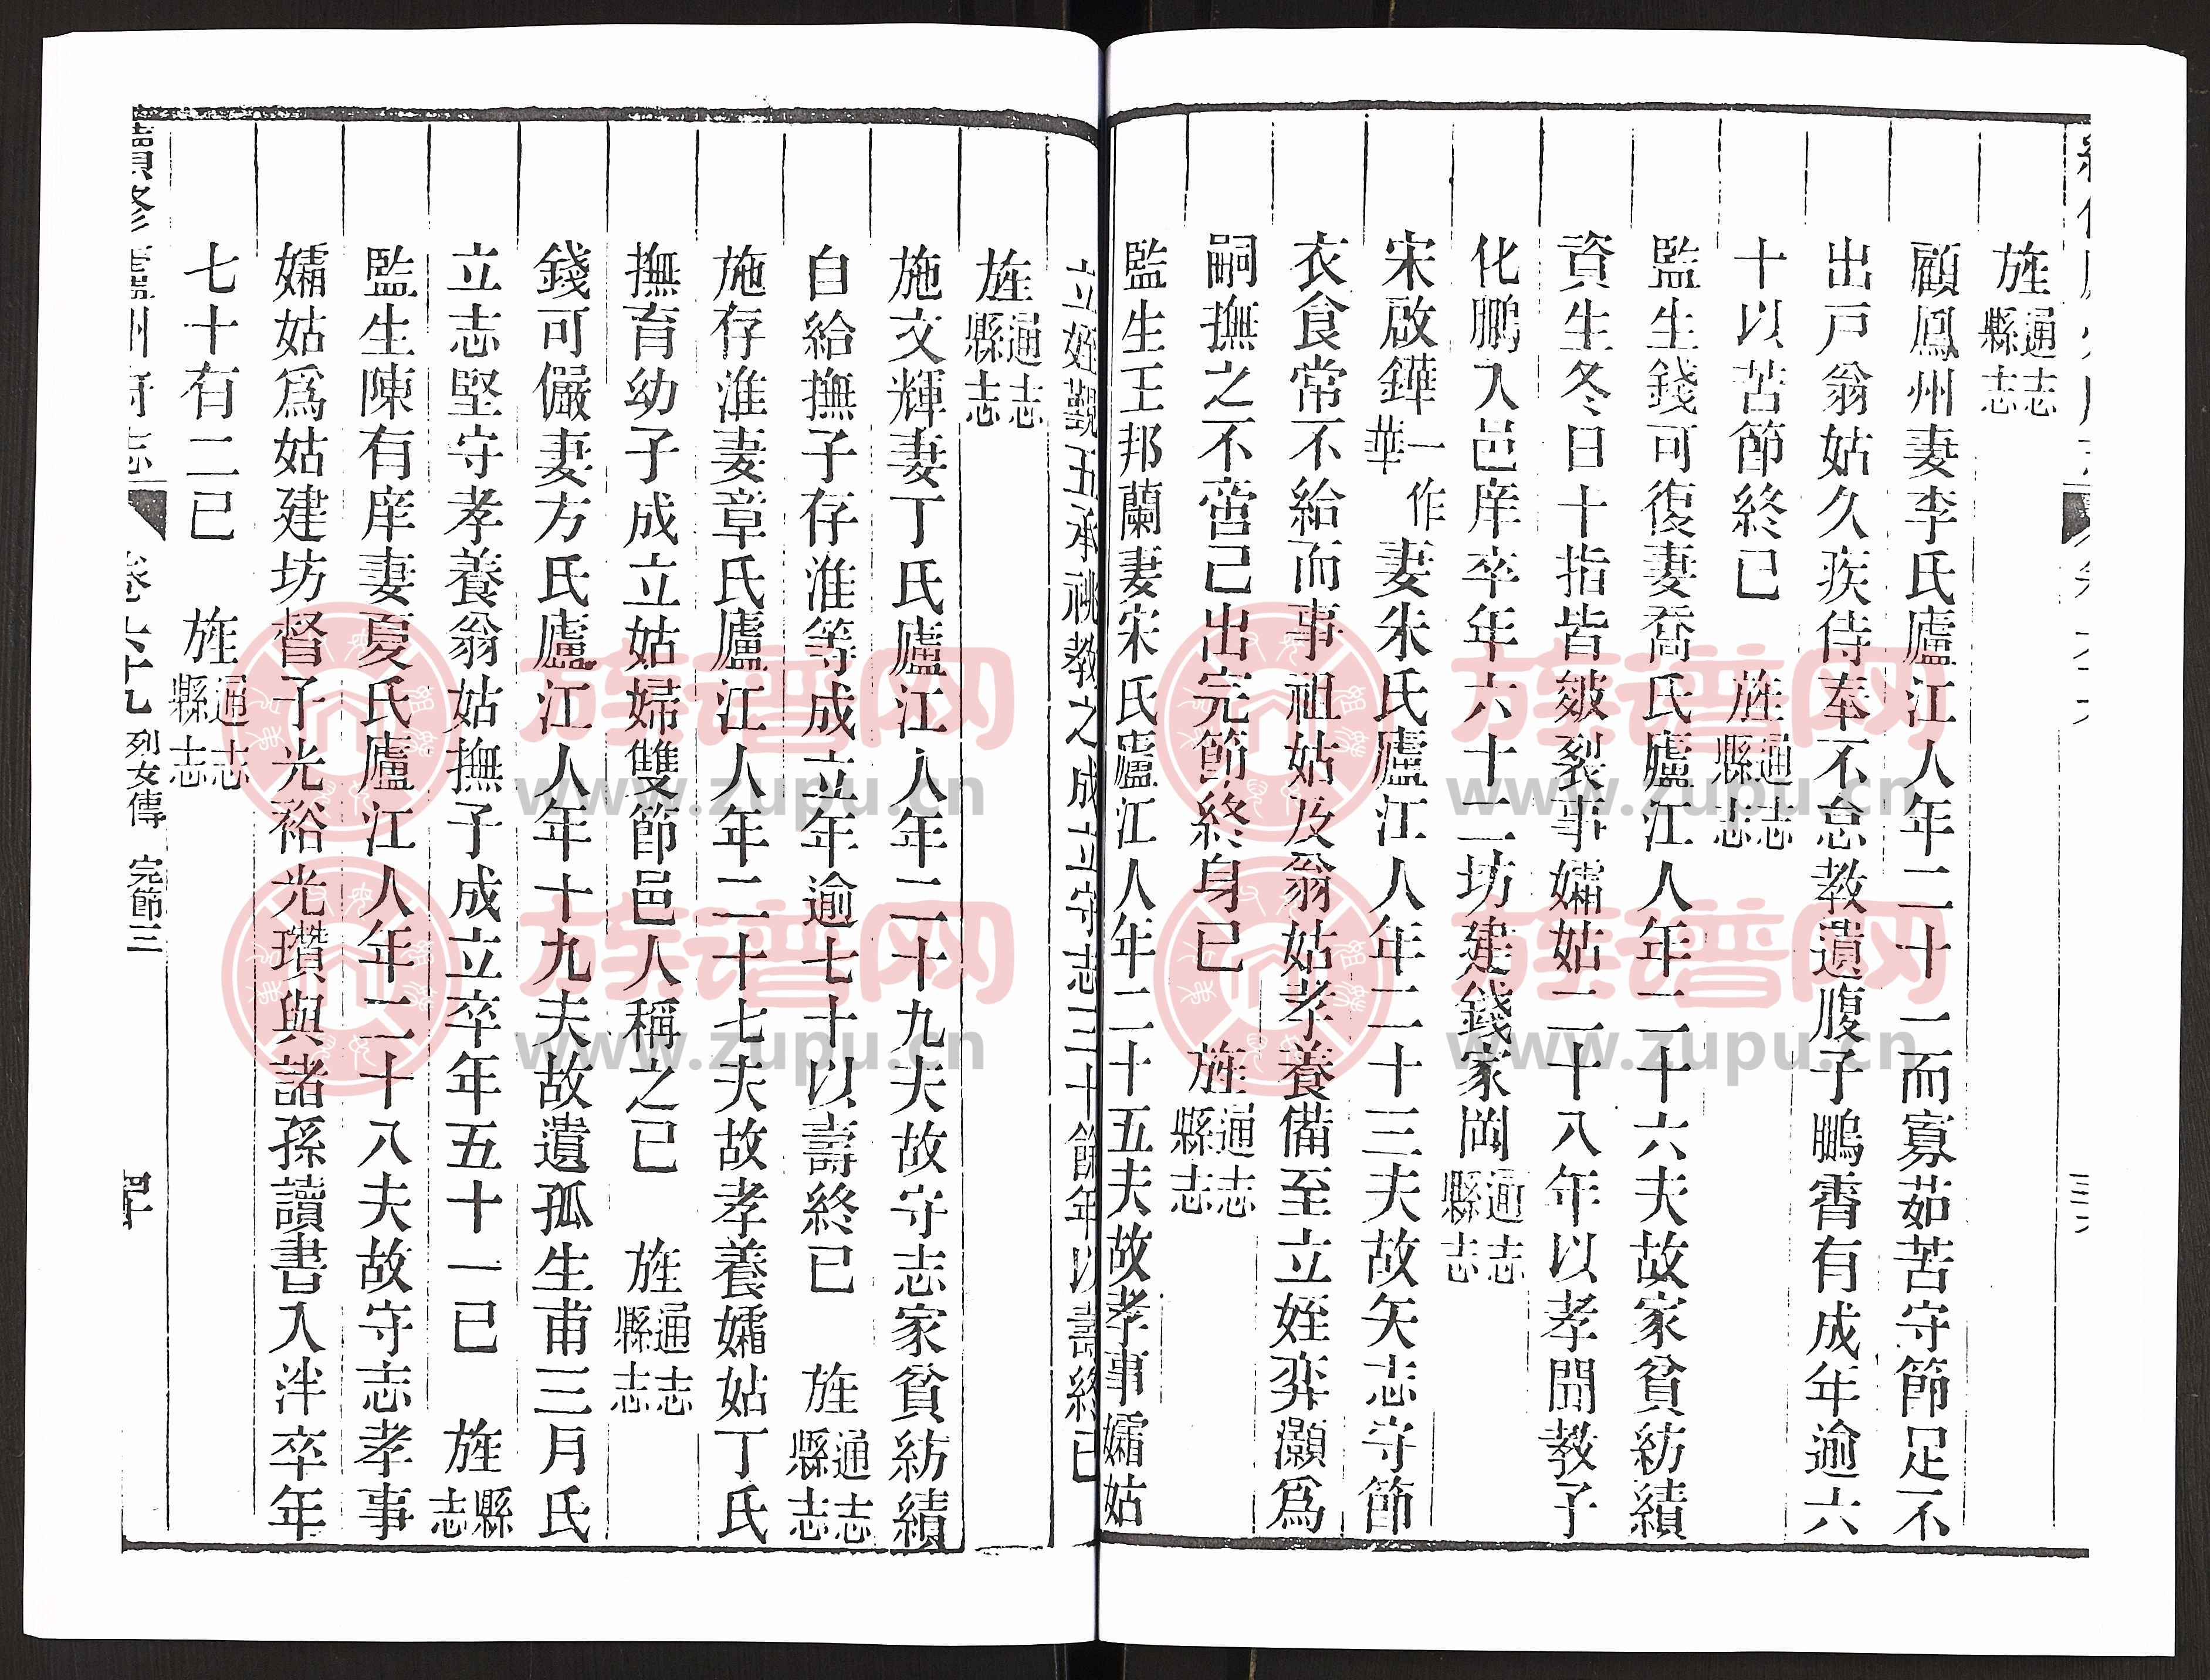 旌通志縣志
顧鳳州妻李氏廬江人年二十一而寡茹苦守節足不
出戸翁姑久疾侍奉不怠教遺腹子鵬霄有成年逾六
十以苦節終已　旌通志縣志
監生錢可復妻喬氏廬江人年二十六夫故家貧紡績
資生冬日十指皆皴裂事孀姑二十八年以孝聞教子
化鵬入邑庠卒年六十二坊建錢家岡通志縣志
宋啟鏵一作華妻朱氏廬江人年二十三夫故矢志守節
衣食常不給而事祖姑及翁姑孝養備至立姪弈灝爲
嗣撫之不啻己出完節終身已　旌通志縣志
監生王邦蘭妻宋氏廬江人年二十五夫故孝事孀姑
立姪覲五承祧教之成立守志三十餘年以壽終已
旌通志縣志
施文輝妻丁氏廬江人年二十九夫故守志家貧紡績
自給撫子存淮等成立年逾七十以壽終已　旌通志縣志
施存淮妻章氏廬江人年二十七夫故孝養孀姑丁氏
撫育幼子成立姑婦雙節邑人稱之已　旌通志縣志
錢可儼妻方氏廬江人年十九夫故遺孤生甫三月氏
立志堅守孝養翁姑撫子成立卒年五十一已　旌縣志
監生陳有庠妻夏氏廬江人年二十八夫故守志孝事
孀姑爲姑建坊督子光裕光瓚與諸孫讀書入泮卒年
七十有二已　旌通志縣志
續修廬州府志　卷六十九　列女傳　完節三
族谱网
www.zupu.cn
族谱网
www.zupu.cn
族谱网
www.zupu.cn
族谱网
www.zupu.cn